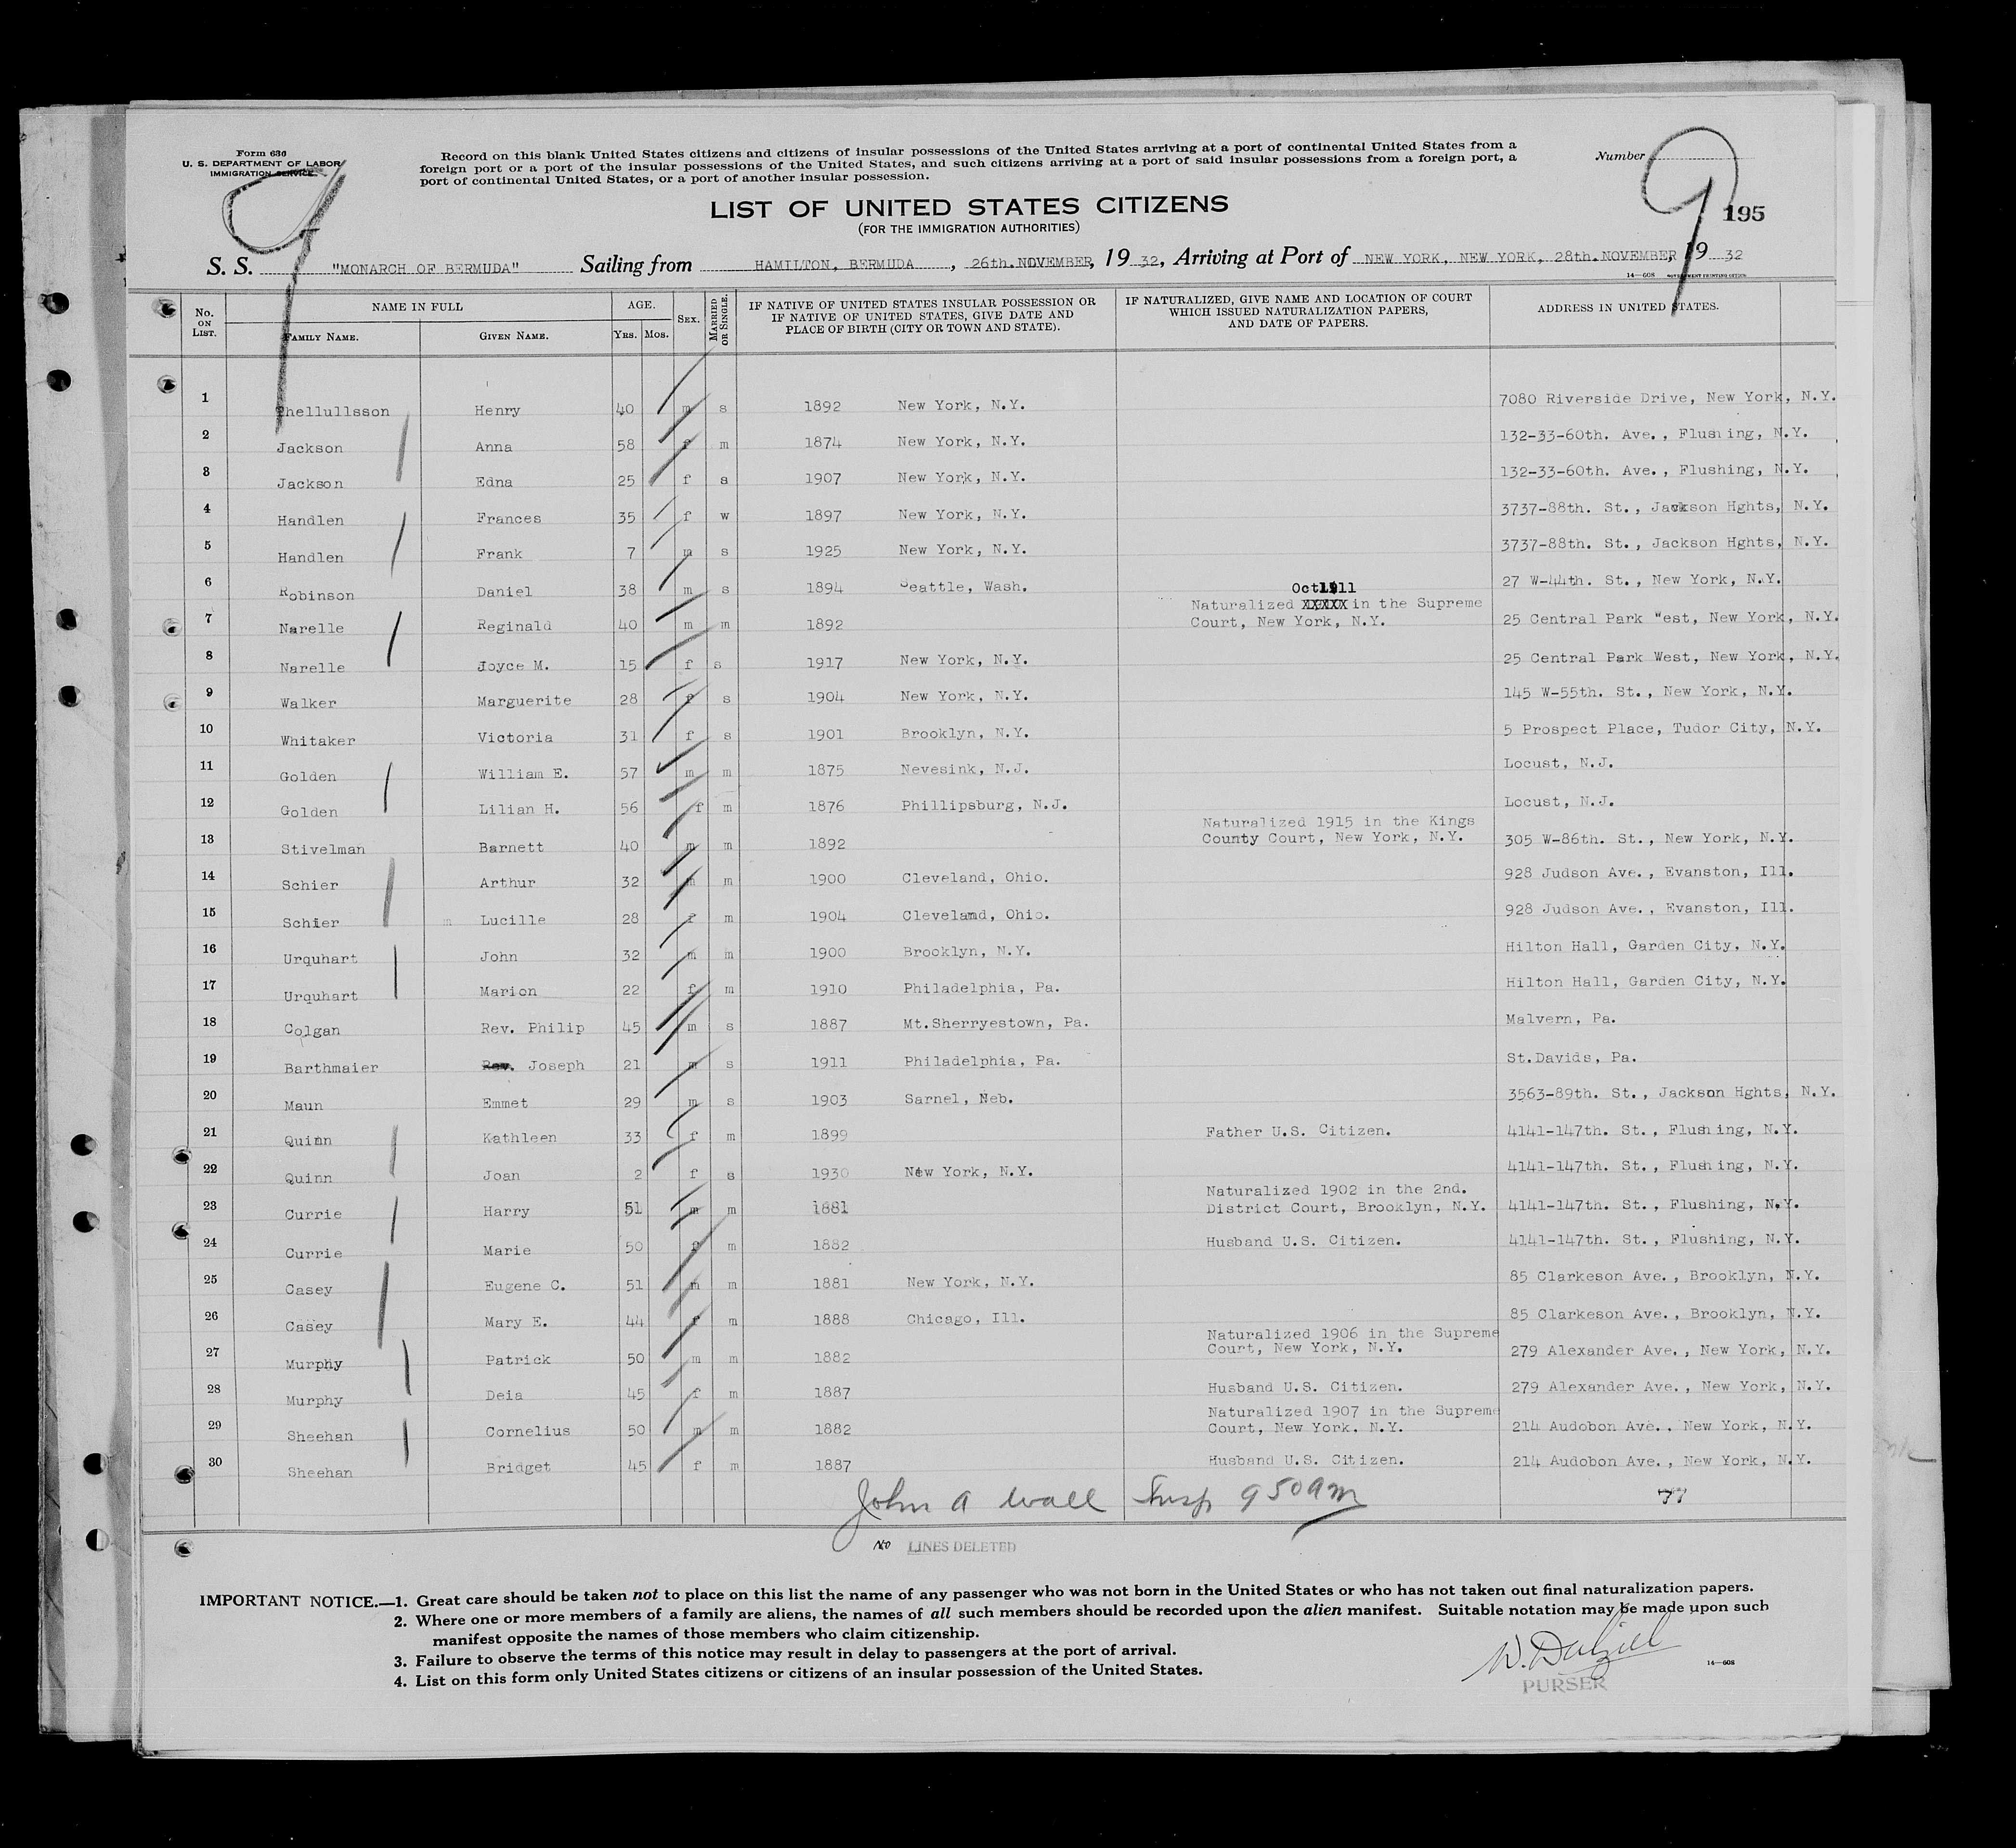 Form 630
U. S. DEPARTMENT OF LABOR
IMMIGRATION SERVICE
Record on this blank United States citizens and citizens of insular possessions of the United States arriving at a port of continental United States from a
foreign port or a port of the insular possessions of the United States, and such citizens arriving at a port of said insular possessions from a foreign port, a
port of continental United States, or a port of another insular possession.
Number
9
9
195
LIST OF UNITED STATES CITIZENS
(FOR THE IMMIGRATION AUTHORITIES)
S. S. "MONARCH OF BERMUDA" Sailing from HAMILTON, BERMUDA, 26th. NOVEMBER, 19 32, Arriving at Port of NEW YORK, NEW YORK, 28th. NOVEMBER 19 32
14—608 GOVERNMENT PRINTING OFFICE
No. ON LIST. NAME IN FULL FAMILY NAME. GIVEN NAME. AGE. YRS. MOS. SEX. MARRIED OR SINGLE. IF NATIVE OF UNITED STATES INSULAR POSSESSION OR IF NATIVE OF UNITED STATES, GIVE DATE AND PLACE OF BIRTH (CITY OR TOWN AND STATE). IF NATURALIZED, GIVE NAME AND LOCATION OF COURT WHICH ISSUED NATURALIZATION PAPERS, AND DATE OF PAPERS. ADDRESS IN UNITED STATES.
1 Thellullsson Henry 40 m s 1892 New York, N.Y. 7080 Riverside Drive, New York, N.Y.
2 Jackson Anna 58 f m 1874 New York, N.Y. 132-33-60th. Ave., Flushing, N.Y.
3 Jackson Edna 25 f s 1907 New York, N.Y. 132-33-60th. Ave., Flushing, N.Y.
4 Handlen Frances 35 f w 1897 New York, N.Y. 3737-88th. St., Jackson Hghts, N.Y.
5 Handlen Frank 7 m s 1925 New York, N.Y. 3737-88th. St., Jackson Hghts, N.Y.
6 Robinson Daniel 38 m s 1894 Seattle, Wash. 27 W-44th. St., New York, N.Y.
7 Narelle Reginald 40 m m 1892 Naturalized XXXXX Oct1911 in the Supreme Court, New York, N.Y. 25 Central Park West, New York, N.Y.
8 Narelle Joyce M. 15 f s 1917 New York, N.Y. 25 Central Park West, New York, N.Y.
9 Walker Marguerite 28 f s 1904 New York, N.Y. 145 W-55th. St., New York, N.Y.
10 Whitaker Victoria 31 f s 1901 Brooklyn, N.Y. 5 Prospect Place, Tudor City, N.Y.
11 Golden William E. 57 m m 1875 Nevesink, N.J. Locust, N.J.
12 Golden Lilian H. 56 f m 1876 Phillipsburg, N.J. Locust, N.J.
13 Stivelman Barnett 40 m m 1892 Naturalized 1915 in the Kings County Court, New York, N.Y. 305 W-86th. St., New York, N.Y.
14 Schier Arthur 32 m m 1900 Cleveland, Ohio. 928 Judson Ave., Evanston, Ill.
15 Schier m Lucille 28 f m 1904 Cleveland, Ohio. 928 Judson Ave., Evanston, Ill.
16 Urquhart John 32 m m 1900 Brooklyn, N.Y. Hilton Hall, Garden City, N.Y.
17 Urquhart Marion 22 f m 1910 Philadelphia, Pa. Hilton Hall, Garden City, N.Y.
18 Colgan Rev. Philip 45 m s 1887 Mt.Sherryestown, Pa. Malvern, Pa.
19 Barthmaier Rev. Joseph 21 m s 1911 Philadelphia, Pa. St.Davids, Pa.
20 Maun Emmet 29 m s 1903 Sarnel, Neb. 3563-89th. St., Jackson Hghts, N.Y.
21 Quinn Kathleen 33 f m 1899 Father U.S. Citizen. 4141-147th. St., Flushing, N.Y.
22 Quinn Joan 2 f s 1930 New York, N.Y. 4141-147th. St., Flushing, N.Y.
23 Currie Harry 51 m m 1881 Naturalized 1902 in the 2nd. District Court, Brooklyn, N.Y. 4141-147th. St., Flushing, N.Y.
24 Currie Marie 50 f m 1882 Husband U.S. Citizen. 4141-147th. St., Flushing, N.Y.
25 Casey Eugene C. 51 m m 1881 New York, N.Y. 85 Clarkeson Ave., Brooklyn, N.Y.
26 Casey Mary E. 44 f m 1888 Chicago, Ill. 85 Clarkeson Ave., Brooklyn, N.Y.
27 Murphy Patrick 50 m m 1882 Naturalized 1906 in the Supreme Court, New York, N.Y. 279 Alexander Ave., New York, N.Y.
28 Murphy Deia 45 f m 1887 Husband U.S. Citizen. 279 Alexander Ave., New York, N.Y.
29 Sheehan Cornelius 50 m m 1882 Naturalized 1907 in the Supreme Court, New York. N.Y. 214 Audobon Ave., New York, N.Y.
30 Sheehan Bridget 45 f m 1887 Husband U.S. Citizen. 214 Audobon Ave., New York, N.Y.
John A Wall Insp 9 50 am
NO LINES DELETED
IMPORTANT NOTICE.—1. Great care should be taken not to place on this list the name of any passenger who was not born in the United States or who has not taken out final naturalization papers.
2. Where one or more members of a family are aliens, the names of all such members should be recorded upon the alien manifest. Suitable notation may be made upon such
manifest opposite the names of those members who claim citizenship.
3. Failure to observe the terms of this notice may result in delay to passengers at the port of arrival.
4. List on this form only United States citizens or citizens of an insular possession of the United States.
W. Dalziel
PURSER
14—608